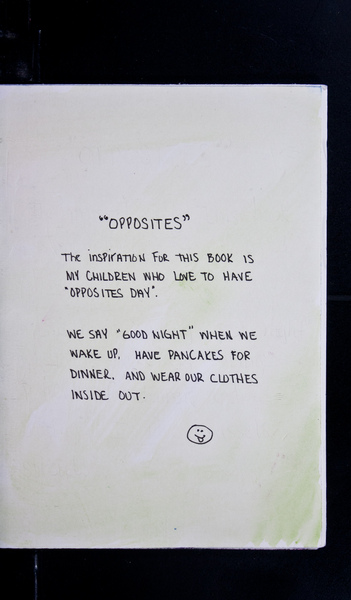 "OPPOSITES"
The inspiration for this book is
my children who love to have
"opposites day".
We say "good night" when we
wake up, have pancakes for
dinner, and wear our clothes
inside out.